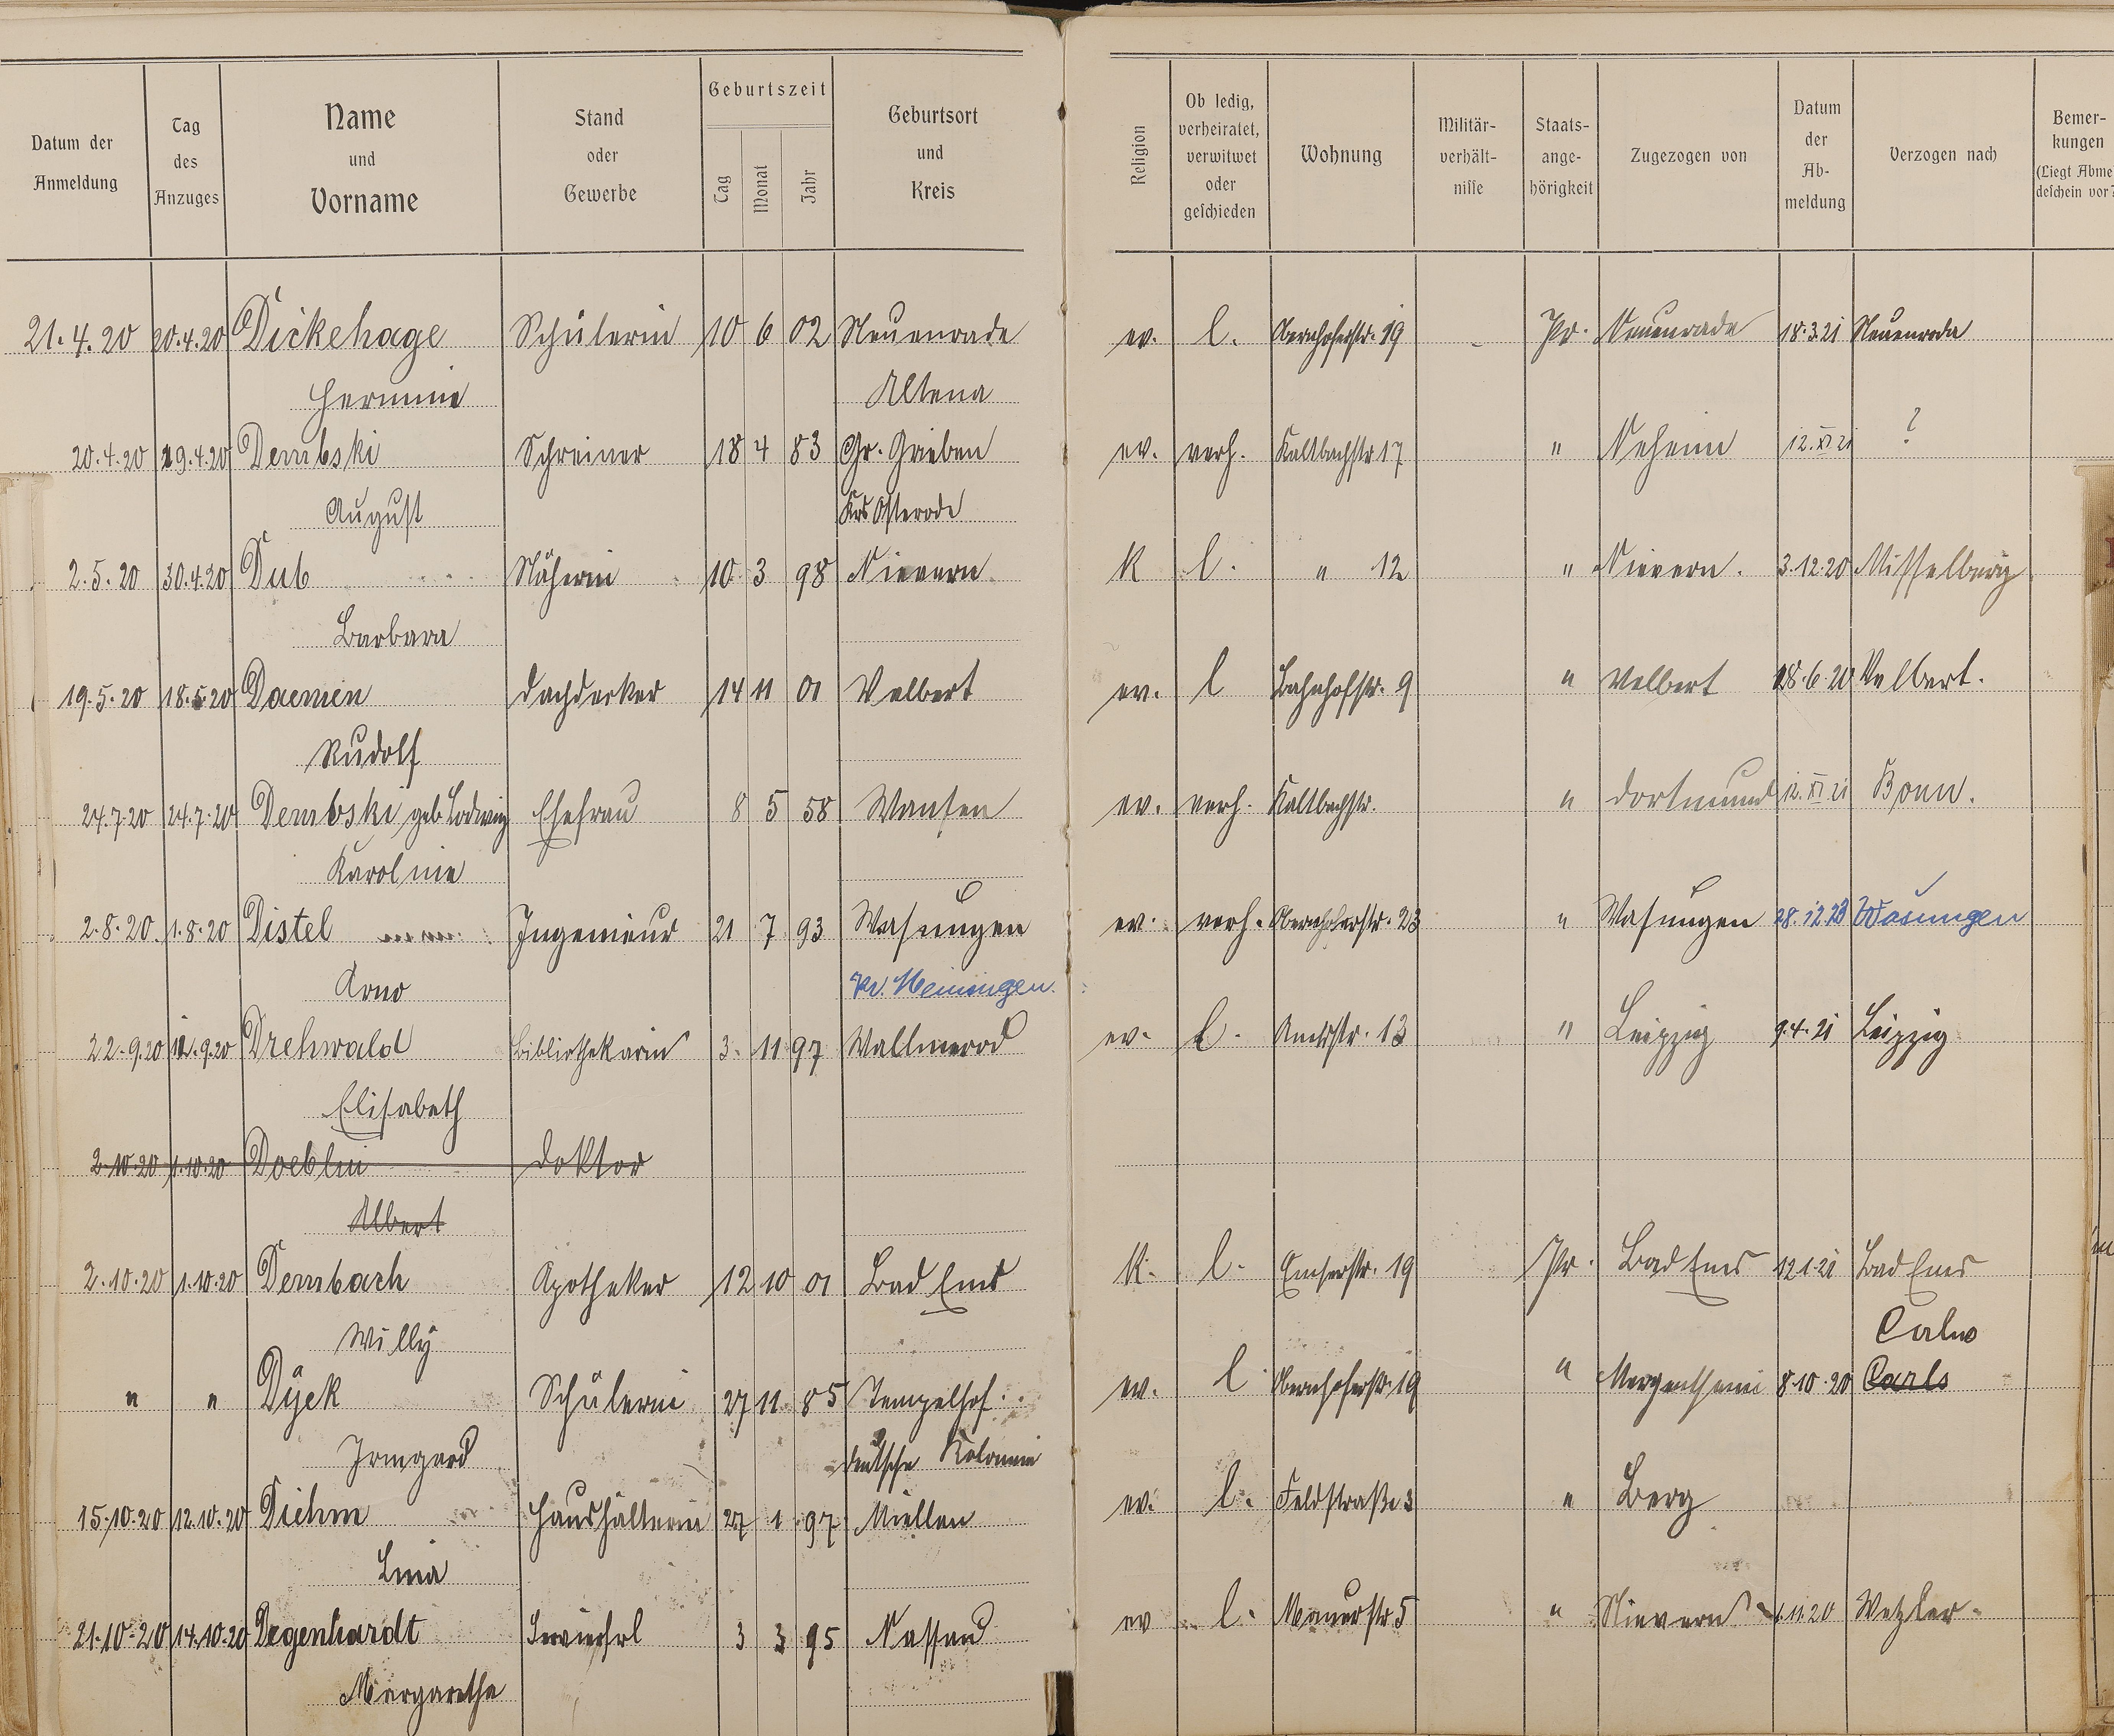 Datum der Anmeldung | Tag des Anzuges | Name und Vorname | Stand oder Gewerbe | Geburtszeit Tag Monat Jahr | Geburtsort und Kreis | Religion | Ob ledig, verheiratet, verwitwet oder geschieden | Wohnung | Militär-verhält-nisse | Staats-ange-hörigkeit | Zugezogen von | Datum der Ab-meldung | Verzogen nach | Bemer-kungen (Liegt Abme deschein vor?
21.4.20 20.4.20 Dickehage Schülerin 10 6 02 Neuenrade ev. l. Obernhoferstr. 19 - Pr. Neuenrade 18.3.21 Neuenrade
Hermine Altena
20.4.20 19.4.20 Dembski Schreiner 18 4 83 Gr. Grieben ev. verh. Kaltbachstr 17 " Neheim 12.XI 21 ?
August Krs Osterode
2.5.20 30.4.20 Dub Näherin 10 3 98 Nievern k l. " 12 " Nievern. 3.12.20 Misselberg
Barbara
19.5.20 18.5.20 Daemen Dachdecker 14 11 01 Velbert ev. l Bahnhofstr. 9 " Velbert 18.6.20 Velbert.
Rudolf
24.7.20 24.7.20 Dembski geb. Ludwig Ehefrau 8 5 58 Wansen ev. verh. Kaltbachstr. " Dortmund 12.XI 21 Bonn.
Karoline
2.8.20. 1.8.20 Distel Ingenieur 21 7 93 Wasungen ev. verh. Obernhoferstr. 23 " Wasungen 28.12.23 Wasungen
Arno Kr. Meiningen.
22.9.20 12.9.20 Drehwald Bibliothekarin 3. 11 97 Wallmerod ev. l. Amtsstr. 13 " Leipzig 9.4.21 Leipzig
Elisabeth
2.10.20 1.10.20 Doeblin Doktor
Albert
2.10.20 1.10.20 Dembach Apotheker 12 10 01 Bad Ems K. l. Emserstr. 19 Pr. Bad Ems 12.1.21 Bad Ems
Willy Calw
" " Dyck Schülerin 27 11 85 Tempelhof. ev. l Obernhoferstr. 19 " Mergentheim 8.10.20 Carls
Irmgard deutsche Kolonie
15.10.20 12.10.20 Diehm Haushälterin 27 1 97 Miellen ev. l. Feldstraße 3 " Berg
Lina
21.10.20 14.10.20 Degenhardt Servierfrl 3 3 95 Nassau ev l. Mauerstr 5 " Nievern 11.20 Wetzlar.
Margarethe